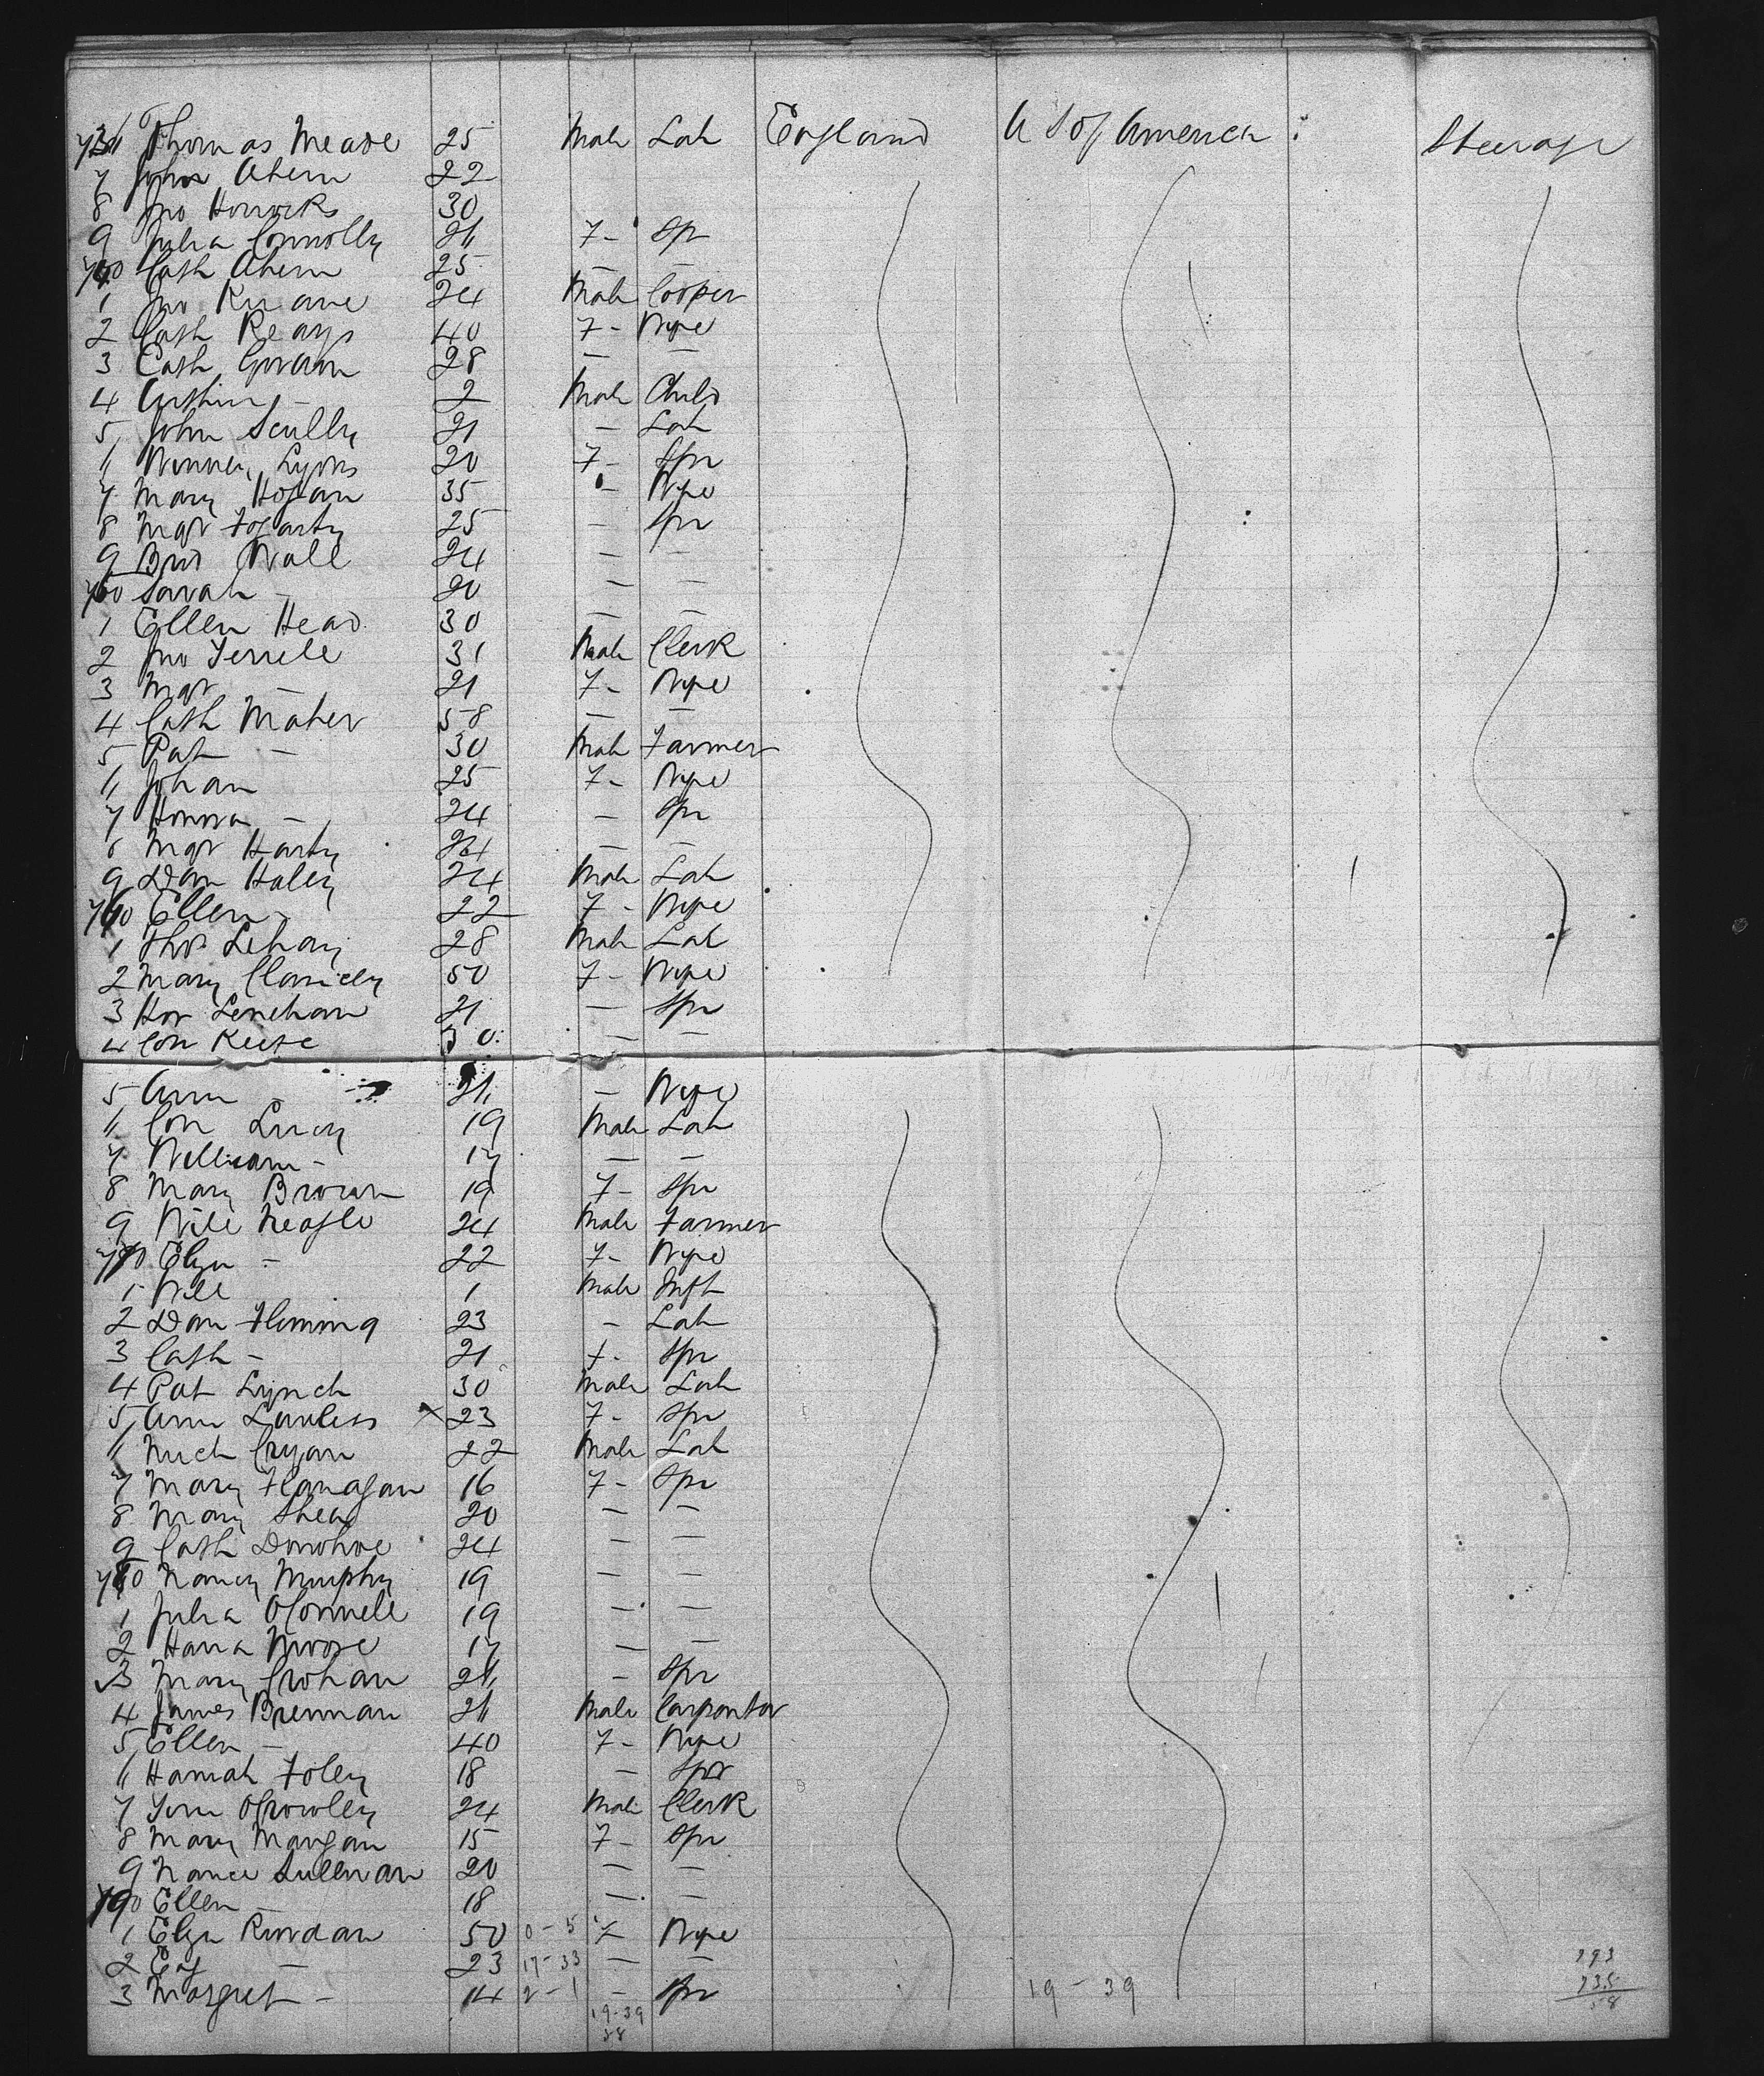 736 Thomas Meade 25 Male Lab England U S of America Steerage
7 John Ahern 22
8 Jno Horrocks 30
9 Julia Connolly 26 F- Spr
740 Cath Ahern 25 — —
1 Jno Kirane 24 Male Cooper
2 Cath Keays 40 F- Wife
3 Cath 28 — —
4 - 2 Male Child
5 John Scully 21 — Lab
6 Lyons 20 F- Spr
7 Mary Hogan 35 - Wife
8 Mgt Fogarty 25 — Spr
9 Brid Wall 24 — —
750 Sarah - 20 — —
1 Ellen Head 30 — —
2 Jno 31 Male Clerk
3 Mgt — 21 F- Wife
4 Cath Maher 58 — —
5 Pat — 30 Male Farmer
6 Johan 25 F- Wife
7 Honora — 24 — Spr
8 Mgt Harty 24 — —
9 Dan Haley 24 Male Lab
760 Ellen - 22 F- Wife
1 Thos Lehary 28 Male Lab
2 Mary 50 F- Wife
3 Hon Lenehan 21 — Spr
4 Con Keefe 30 — —
5 Ann - 26 — Wife
6 Con Lucy 19 Male Lab
7 William - 17 — —
8 Mary Brown 19 F- Spr
9 Will Neagle 24 Male Farmer
770 Eliza - 22 F- Wife
1 Will 1 Male Inft
2 Dan Flemming 23 - Lab
3 Cath - 21 F- Spr
4 Pat Lynch 30 Male Lab
5 Ann Lawless × 23 F- Spr
6 Mich Cryan 22 Male Lab
7 Mary Flanagan 16 F- Spr
8 Mary Shea 20 — —
9 Cath Donohoe 24 — —
780 Nancy Murphy 19 — —
1 Julia OConnell 19 — —
2 Hana Moore 17 — —
3 Mary Crohan 26 - Spr
4 James Brennan 26 Male Carpenter
5 Ellen — 40 F- Wife
6 Hannah Foley 18 — Spr
7 OCrowley 24 Male Clerk
8 Mary Mangan 15 F- Spr
9 Nance Sullivan 20 — —
790 Ellen — 18 — —
1 Eliza Rindan 50 0-5 F Wife
2 — 23 17-33 — — 793
3 Margret - 14 2-1 - Spr 19-39 735
19-39 58
58